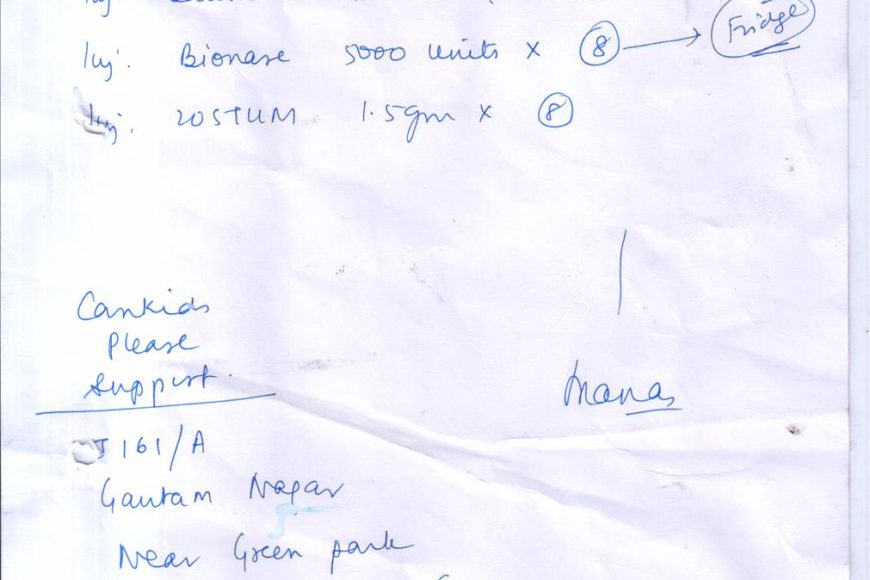 Inj.
Inj. Bionase 5000 units x 8 → Fridge
Inj. ZOSTUM 1.5gm x 8
Cankids
Please
Support.
J 161/A
Gautam Nagar
Near Green park
Manas